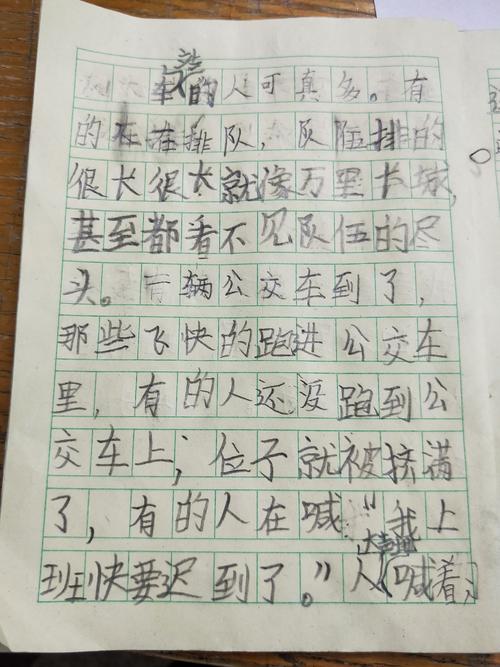 车的人可真多。有
的在排队，队伍排的
很长很长就像万里长城，
甚至都看不见队伍的尽
头。一辆公交车到了，
那些飞快的跑进公交车
里，有的人还没跑到公
交车上；位子就被挤满
了，有的人在喊“我上
大声地
班快要迟到了。”人（喊着